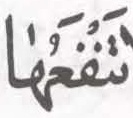 تَنْفَعُهَا